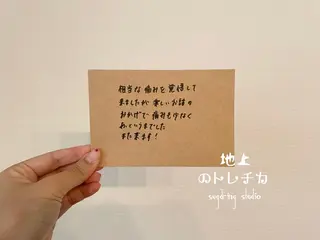 相当な痛みを覚悟して
きましたが 楽しいお話の
おかげで 痛みも少なく
あっというまでした
また来ます！
地上
のトレチカ
sugaring studio